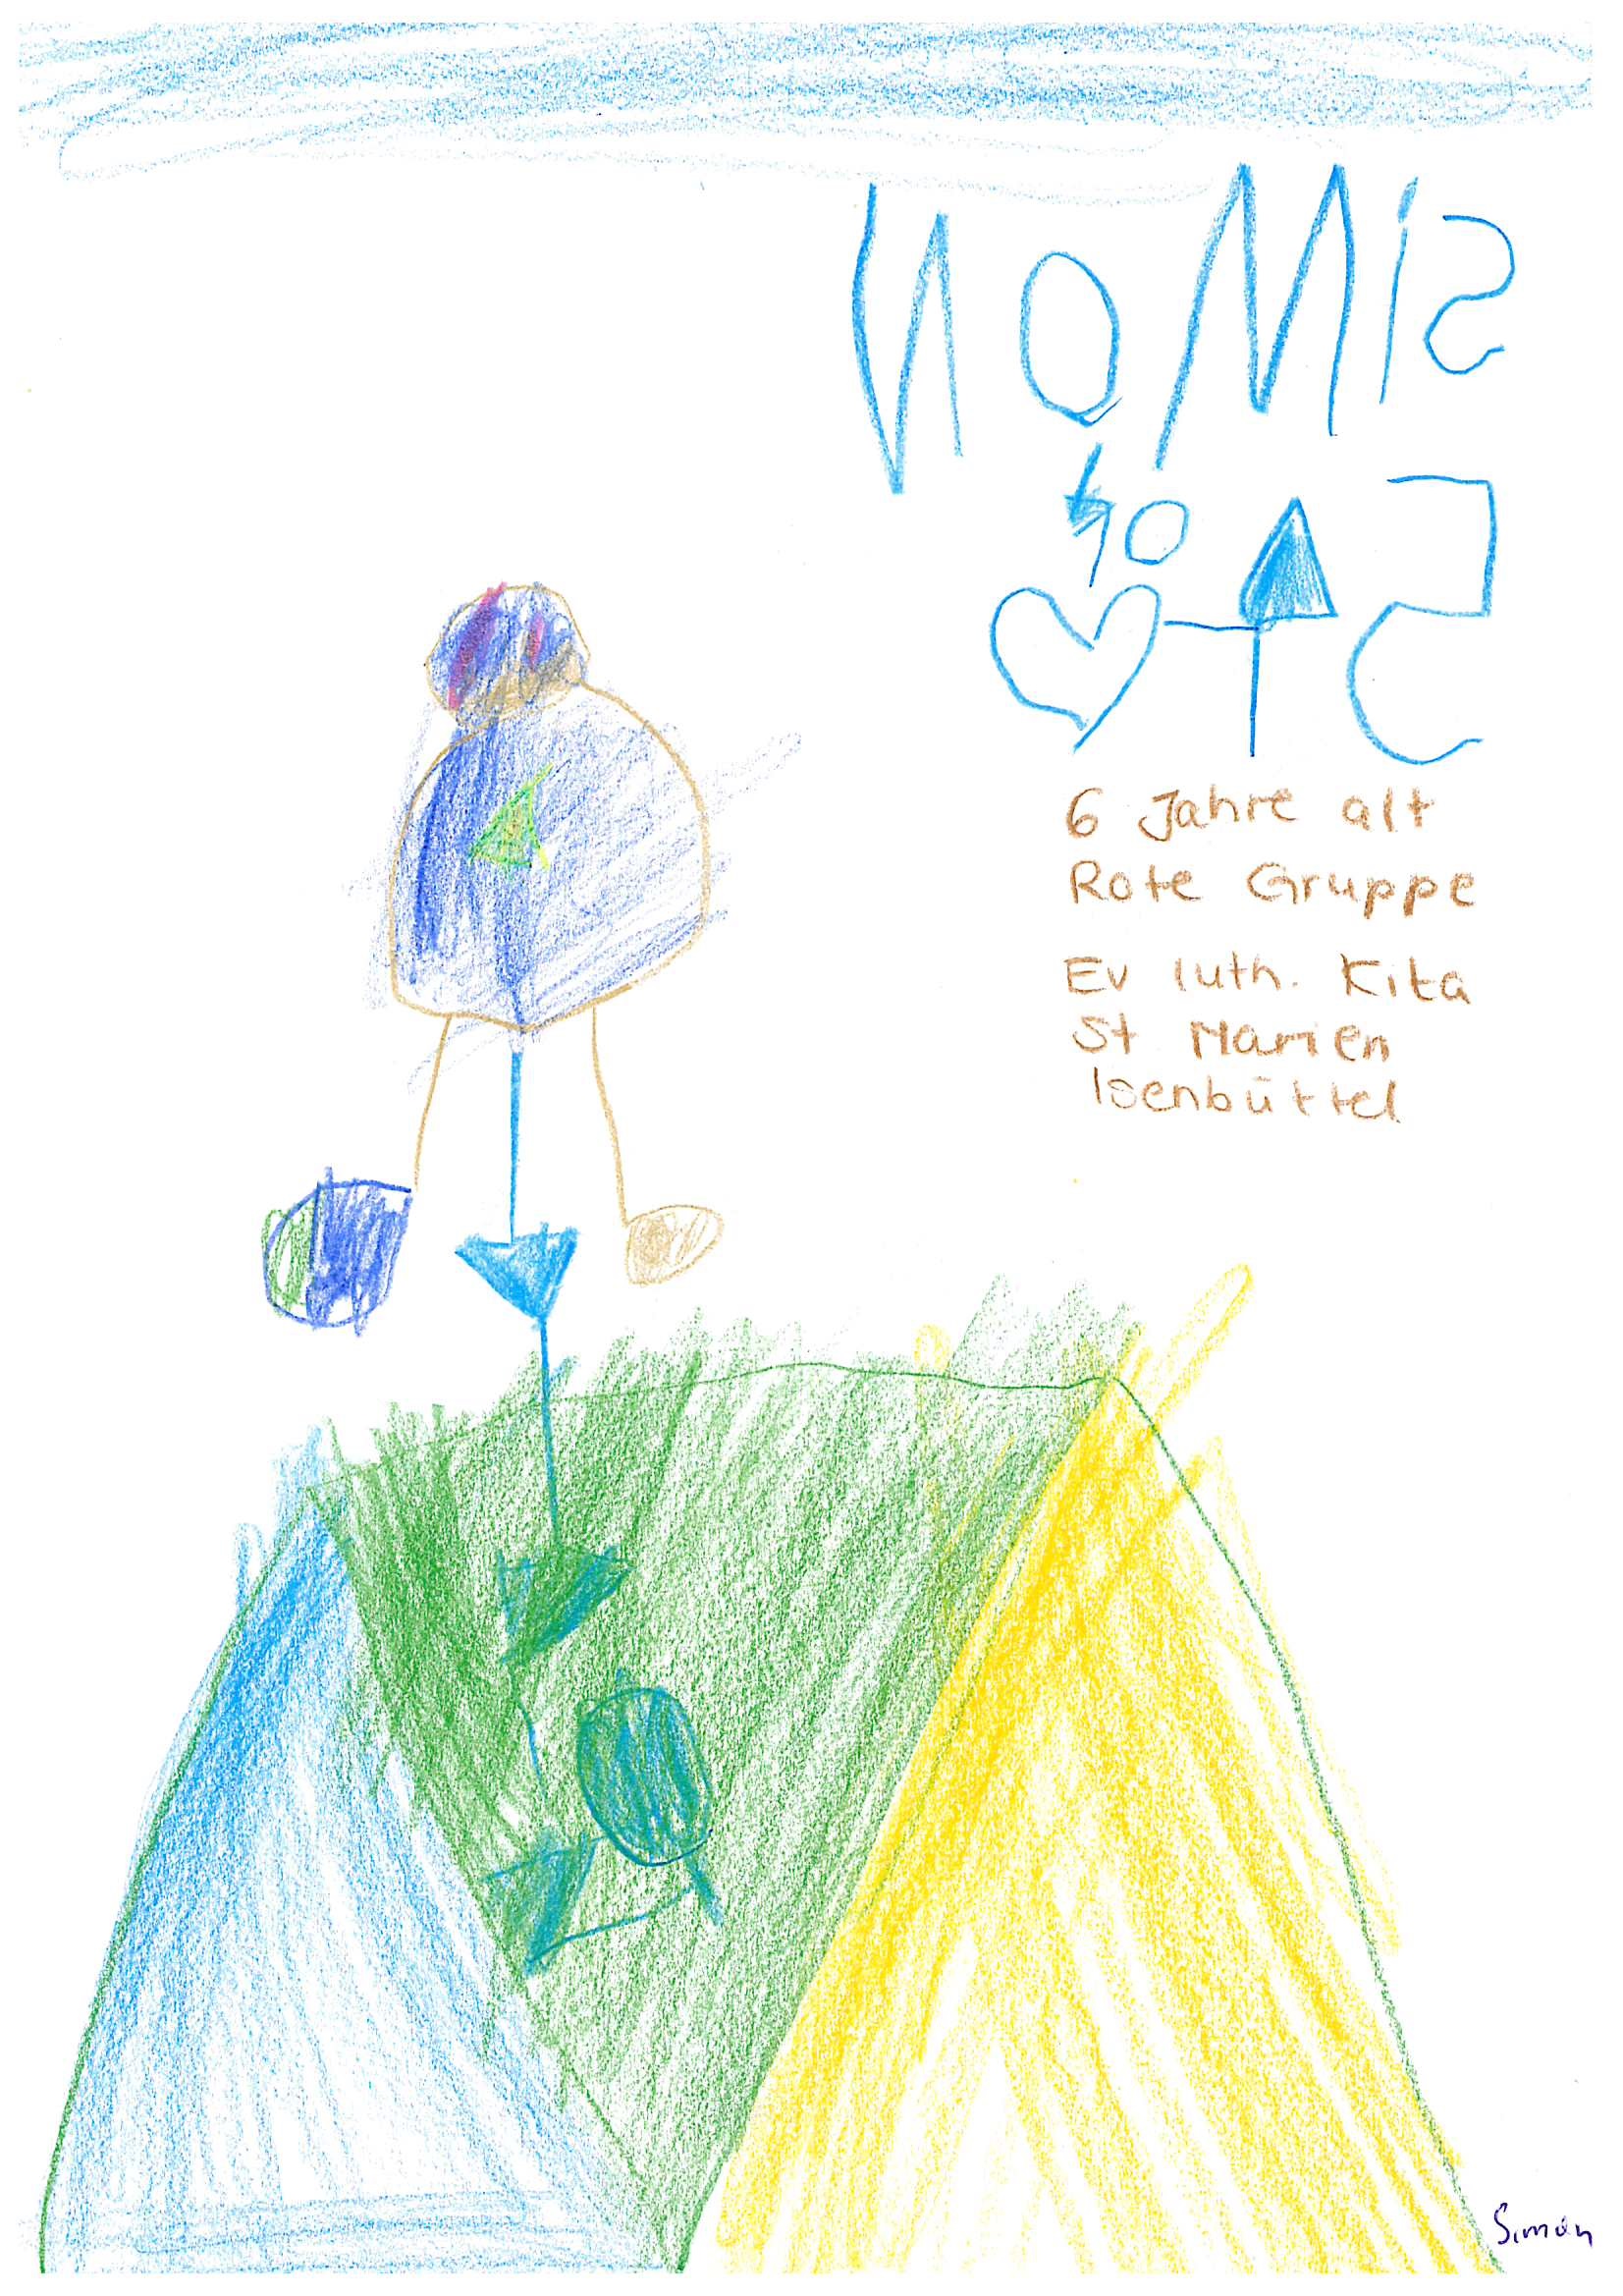 SiMON
6 Jahre alt
Rote Gruppe
Ev luth. Kita
St Marien
Isenbüttel
Simon